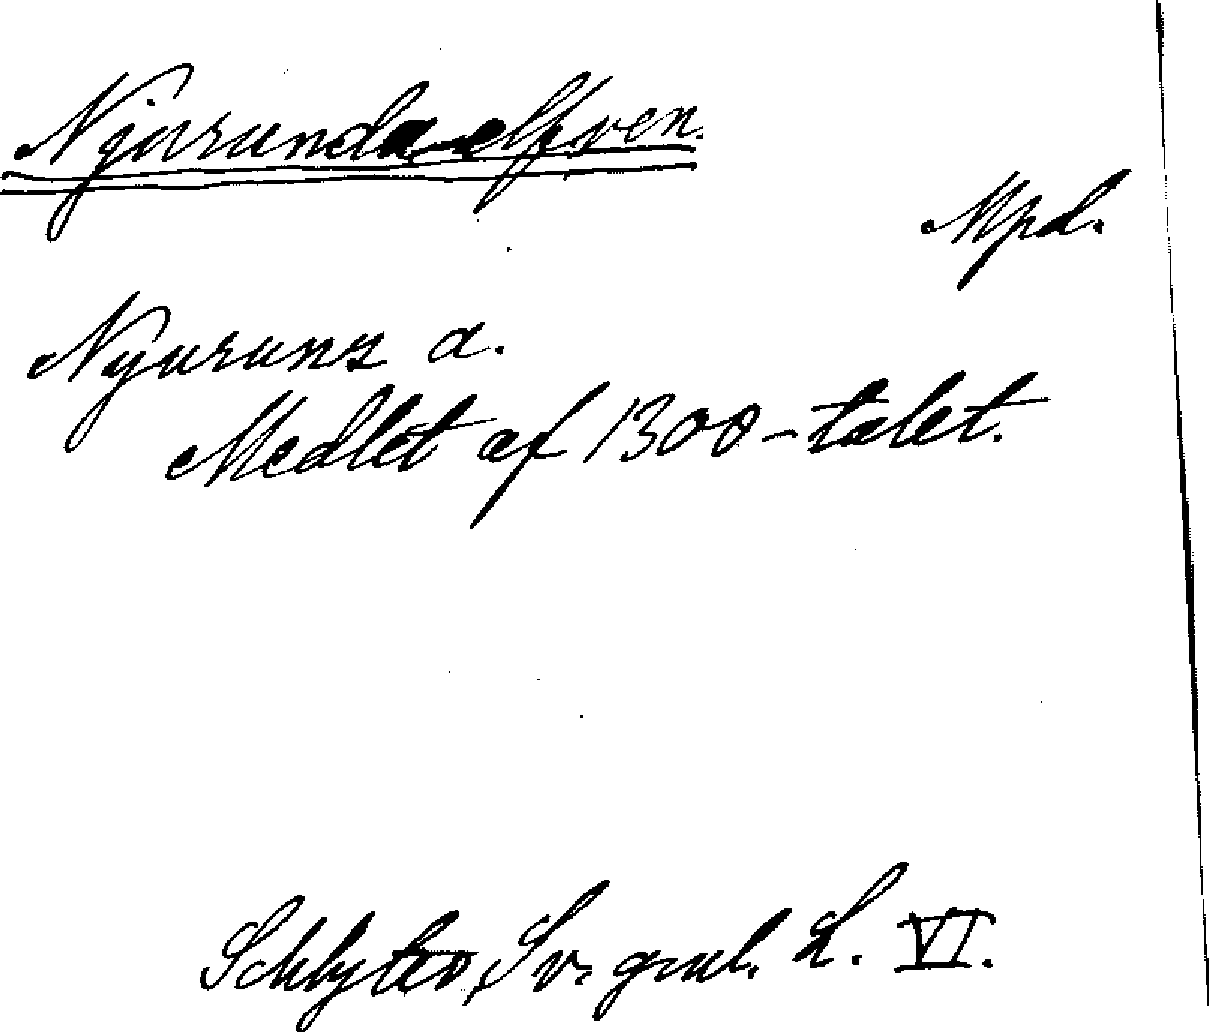 Njurunda-elfven.
Mpd.
Nyurunz a.
Medlet af 1300-talet.
Schlyter, Sv. gml. L. VI.